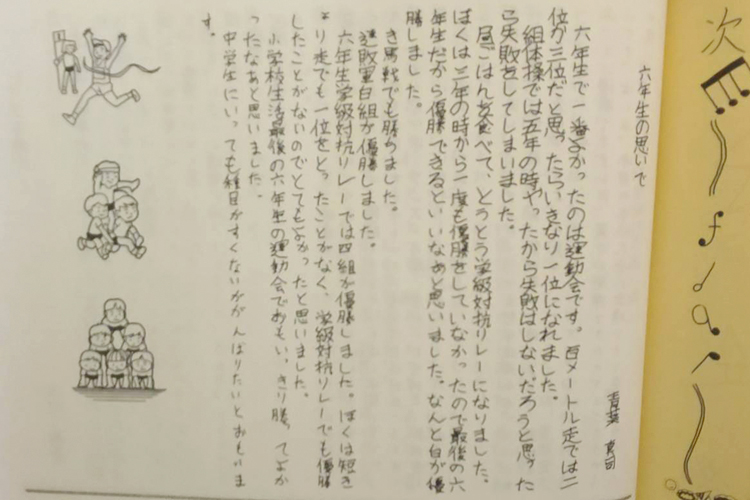 次
六年生の思いで
青葉 真司
六年生で一番よかったのは運動会です。百メートル走では二
位か三位だと思ったらいきなり一位になれました。
組体操では五年の時やったから失敗はしないだろうと思った
ら失敗をしてしまいました。
昼ごはんを食べて、とうとう学級対抗リレーになりました。
ぼくは三年の時から一度も優勝をしていなかったので最後の六
年生だから優勝できるといいなあと思いました。なんと白が優
勝しました。
き馬戦でも勝ちました。
連敗軍白組が優勝しました。
六年生学級対抗リレーでは四組が優勝しました。ぼくは短き
ょり走でも一位をとったことがなく、学級対抗リレーでも優勝
したことがないのでとてもよかったと思いました。
小学校生活最後の六年生の運動会でおもいっきり勝ってよか
ったなあと思いました。
中学生にいっても種目がすくないががんばりたいとおもいま
す。